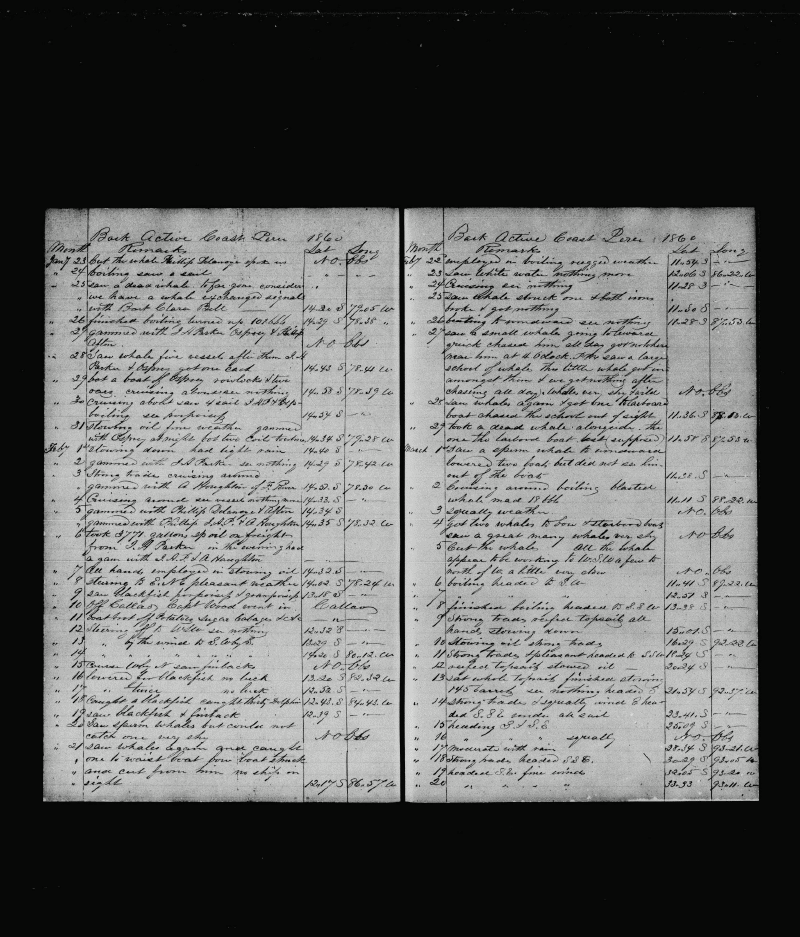 Bark Active Coast Peru 1860
Month Remarks Lat Long
Jany 23 Cut the whale Phillip Delanoye spoke us No Obs
" 24 boiling saw a sail " — " —
" 25 saw a dead whale to far gone consider
" we have a whale exchanged signals
with Bark Clara Bell 14.20 S 79.05 W
" 26 finished boiling turned up 14.29 S 78.38 "
" 27 gammed with J A Parker Osprey & Phillip
No Obs
" 28 Saw whale five vessels after them J A
Parker & Osprey got one Each 14.43 S 78.41 W
" 29 got a boat of Osprey rowlocks & two
oars cruising alone see nothing 14.53 S 78.39 W
" 30 cruising about saw 4 sail
boiling see porpoises 14.54 S — " —
" 31 stowing oil fine weather gammed
with Osprey at night 14.34 S 79.28 W
Feby 1st stowing down had light rain 14.40 S — " —
" 2 gammed with J A Parker see nothing 14.29 S 78.42 W
" 3 Strong trades cruising around
" gammed with A Houghton of F River 14.37 S 78.50 W
" 4 Cruising around see vessel nothing more 14.33 S — " —
" 5 gammed with Phillip Delanoye & Afton 14.34 S
" gammed with Phillip J.A.P. & A Houghton 14.35 S 78.32 W
" 6 took 3771 gallons sp oil on freight
from J. A Parker in the evening had
a gam with J.A.P & A Houghton — " —
" 7 All hands employed in stowing oil 14.32 S — " —
" 8 Stearing to E.N.E pleasant weather 14.02 S 78.24 W
" 9 saw blackfish porpoises & grampuses 13.18 S — " —
" 10 Off Callao Capt Wood went in Callao
" 11 boat loads of Potatoes Sugar Cabage & c&c — " —
" 12 Stearing off to W.SW see nothing 12.32 S — " —
" 13 " by the wind to S.W by S 13.29 S — " —
" 14 " " " " " 14.20 S 80.12 W
" 15 Course W by N saw finbacks No Obs
" 16 lowered for blackfish no luck 13.20 S 82.32 W
" 17 " twice " no luck 12.52 S — " —
" 18 Caught a blackfish caught thirty dolphin 12.43 S 84.43 W
" 19 saw blackfish & finback 12.39 S — " —
" 20 Saw sperm whales but could not
catch one very shy No Obs
" 21 saw whales again and caught
" one to waist boat bow boat struck
" and cut from him no ship in
sight 12.17 S 86.57 W
Bark Active Coast Peru 1860
Month Remarks Lat Long
Feby 22 employed in boiling rugged weather 11.54 S — " —
" 23 Saw White water nothing more 12.06 S 86.22 W
" 24 Cruising see nothing 11.28 S — " —
" 25 Saw whale struck one & both irons
broke & got nothing 11.30 S — " —
" 26 beating to windward see nothing 11.28 S 87.53 W
" 27 saw 6 small whales going to leward
quick chased them all day got no where
near him at 4 oclock P.M. saw a large
school of whale this little whale got in
amongst them & we got nothing after
chasing all day. Whales very shy & wild No Obs
" 28 saw whales again & got one to larboard
boat chased the school out of sight 11.36 S 88.00 W
" 29 took a dead whale alongside the
one the larbord boat lost supposed 11.58 S 87.53 W
March 1st Saw a sperm whale to windward
lowered two boats but did not see him
out of the boat 11.38 S — " —
" 2 Cruising around boiling blasted
whale mad 18 bbl 11.11 S 88.22 W
" 3 squally weather No Obs
" 4 got two whales to bow & starbord boats
saw a great many whales very shy No Obs
" 5 Cut the whale All the whale
appear to be working to W.SW a few to
north of W a little very slow No Obs
" 6 boiling headed to S.W 11.41 S 89.22 W
" 7 " " " 12.51 S — " —
" 8 finished boiling headed to S.S.W 13.38 S — " —
" 9 Strong trades reefed topsail all
hands stowing down 15.01 S — " —
" 10 Stowing oil strong trades 16.29 S 92.22 W
" 11 Strong trades & pleasant headed to S.SW 18.24 S — " —
" 12 reefed topsails stowed oil 20.24 S — " —
" 13 sat whole topsails finished stowing
145 barrels see nothing headed S 21.54 S 92.37 W
" 14 strong trades & squally wind E hea-
ded S.SE under all sail 23.41 S — " —
" 15 heading S.S.E 25.09 S — " —
" 16 " " squally No Obs
" 17 moderate with rain 28.54 S 93.21 W
" 18 strong trades headed S.SE. 30.29 S 93.05 W
" 19 headed S.E. fine wind 32.05 S 93.20 W
" 20 " " " " 33.33 93.11 W